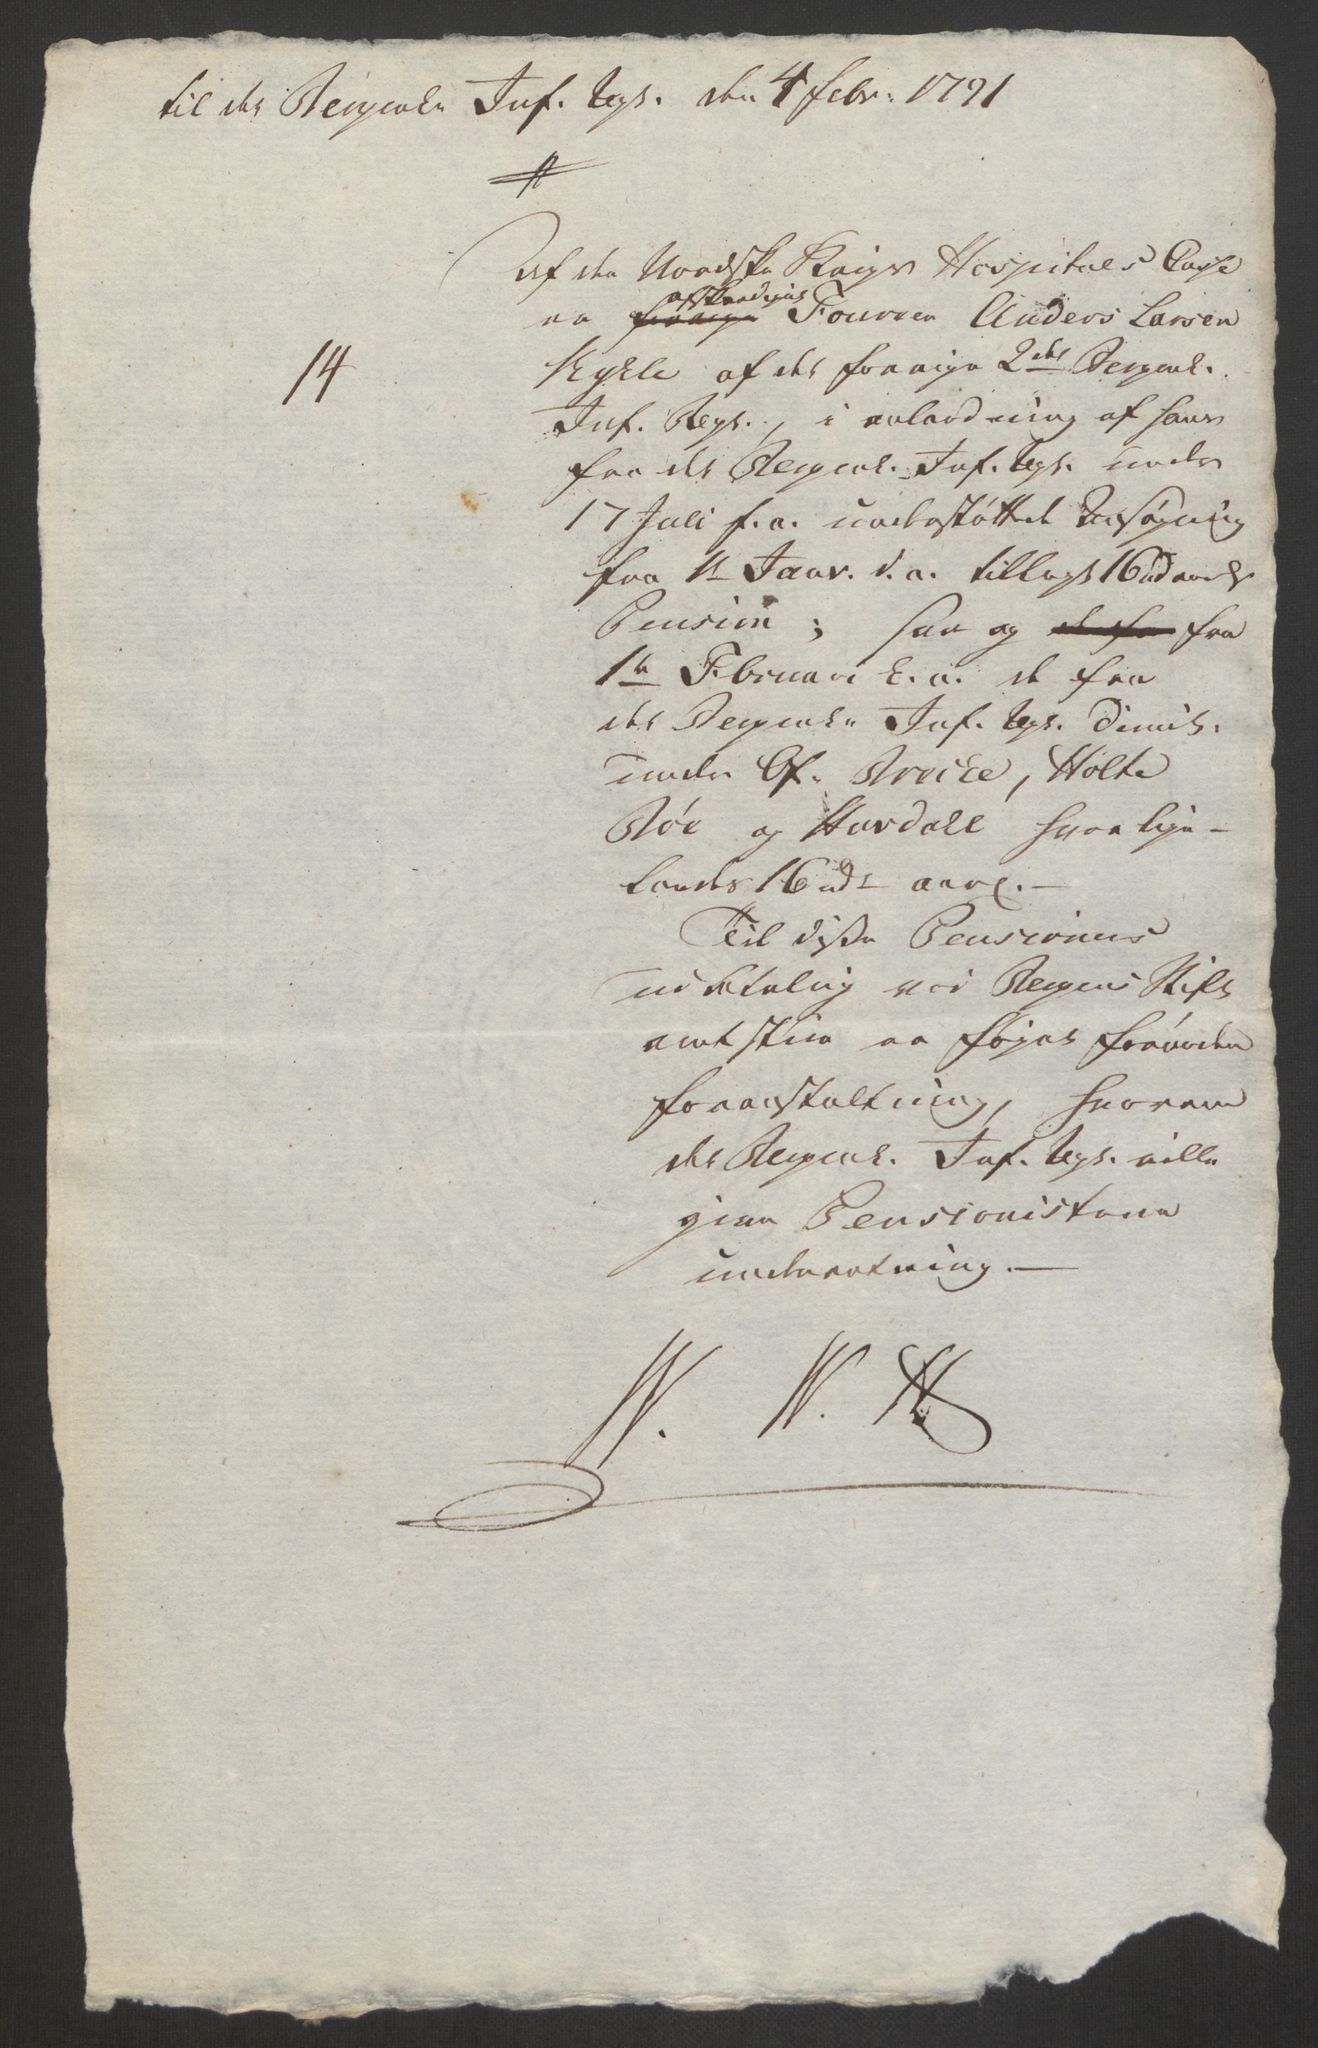 til det Bergenske Inf. Regt. den 4 febr. 1791
Af den Nordske Krigs Hospitals Casse
er afskeediget Foureer Anders Larsen
14
af det forrige 2det Bergensk.
Inf. Regt., i anledning af hans
fra det Bergensk. Inf. Regt. under
17 Juli f.a. understøttede Ansøgning
fra 1te Janv. d.a. tillagt 16 rd aarlig
Pension; saa og fra
1te Februari d.a. de fra
det Bergenske Inf. Regt. dimit.
under Of. Holte
og Hurdahl hver lige-
ledes 16 rd aarl.
Til disse Pensioners
udbetaling ved Bergens Stift
amtstue er føyet fornøden
foranstaltning, hvorom
det Bergensk. Inf. Regt. ville
give Pensionisterne
underretning.